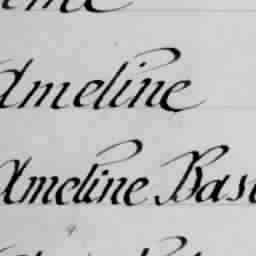 Ameline
Ameline Bas